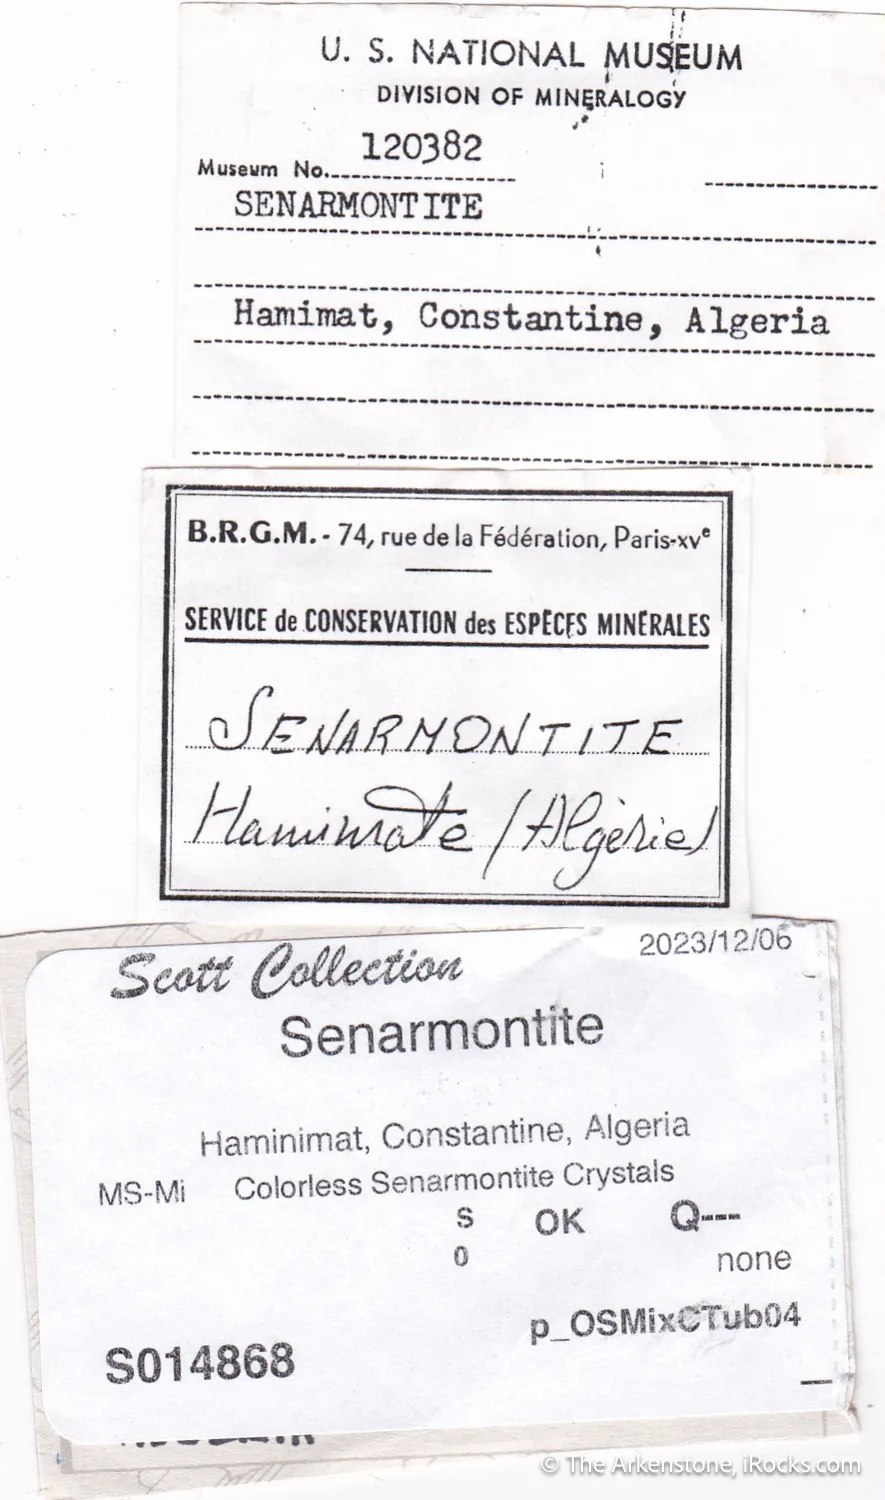 U. S. NATIONAL MUSEUM
DIVISION OF MINERALOGY
Museum No. 120382
SENARMONTITE
Hamimat, Constantine, Algeria
B.R.G.M. - 74, rue de la Fédération, Paris-XVe
SERVICE de CONSERVATION des ESPÈCES MINÉRALES
SENARMONTITE
Hamimate (Algérie)
Scott Collection
2023/12/06
Senarmontite
Haminimat, Constantine, Algeria
MS-Mi Colorless Senarmontite Crystals
S OK Q---
0 none
p_OSMixCTub04
S014868
© The Arkenstone, iRocks.com